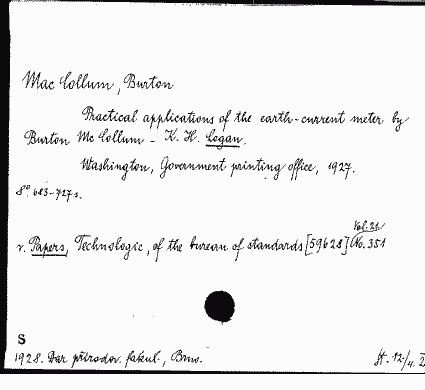 Mac Collum, Burton
Practical applications of the earth-current meter by
Burton Mc Collum - K. H. Logan.
Washington, Government printing office, 1927.
8º. 683-727 s.
Vol. 21
v. Papers, Technologic, of the bureau of standards [59628] No. 351
S
1928. Dar přírodov. fakul., Brno.
St. 12/4.